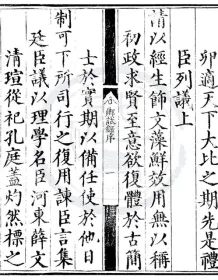 卯適天下大比之期先是禮
臣列議上
請以經生飾文藻鮮效用無以稱
初政求賢至意欲復體於古簡
士於實期以備任使於他日
制可下所司行之復用諫臣言集
廷臣議以理學名臣河東薛文
清瑄從祀孔庭蓋灼然標之